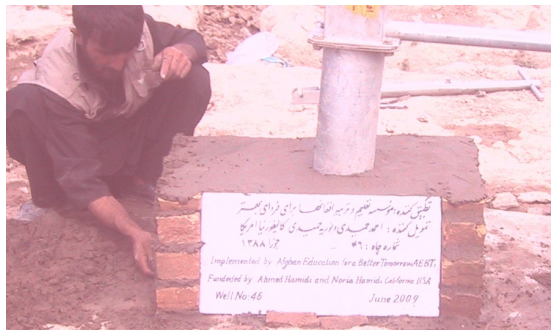 تطبیق کننده: مؤسسه تعلیم و تربیه افغانها برای فردای بهتر
تمویل کننده: احمد حمیدی و نوریه حمیدی کالیفورنیا امریکا
شماره چاه: ۴۶ جوزا ۱۳۸۸
Implemented by Afghan Education for a Better Tomorrow AEBT.
Fundeded by Ahmed Hamidi and Noria Hamidi California USA
Well No: 46 June 2009